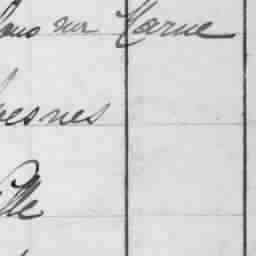 lons sur Marne
esnes
lle